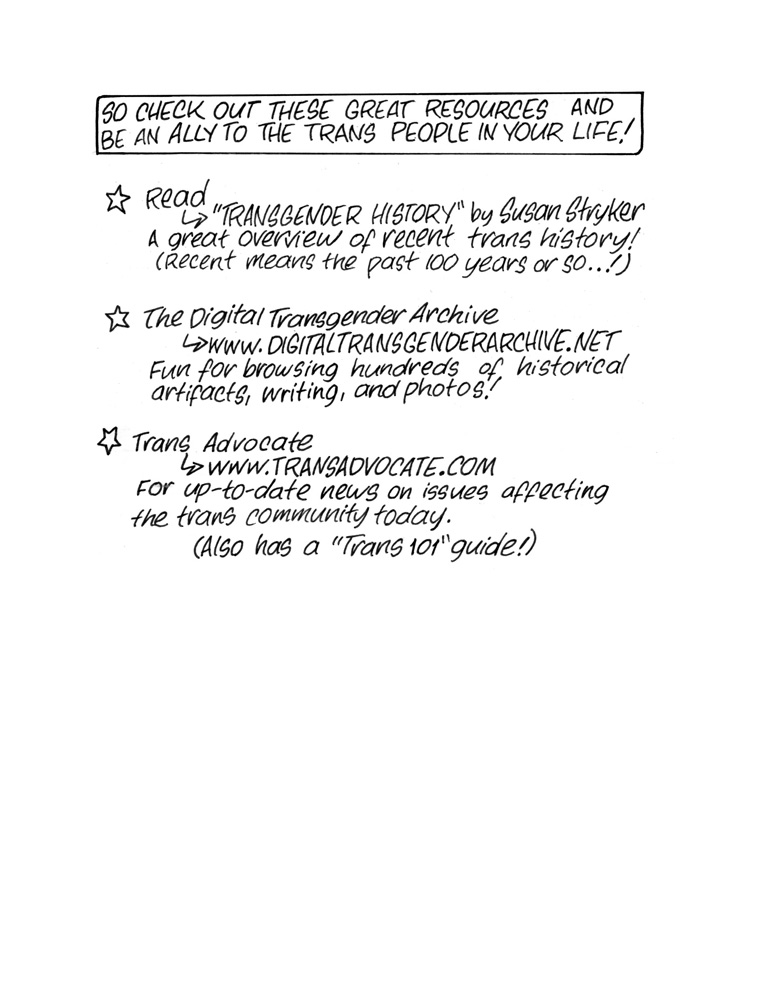 SO CHECK OUT THESE GREAT RESOURCES AND
BE AN ALLY TO THE TRANS PEOPLE IN YOUR LIFE!
Read
"TRANSGENDER HISTORY" by Susan Stryker
A great overview of recent trans history!
(Recent means the past 100 years or so...!)
The Digital Transgender Archive
WWW.DIGITALTRANSGENDERARCHIVE.NET
Fun for browsing hundreds of historical
artifacts, writing, and photos!
Trans Advocate
WWW.TRANSADVOCATE.COM
For up-to-date news on issues affecting
the trans community today.
(Also has a "Trans 101" guide!)